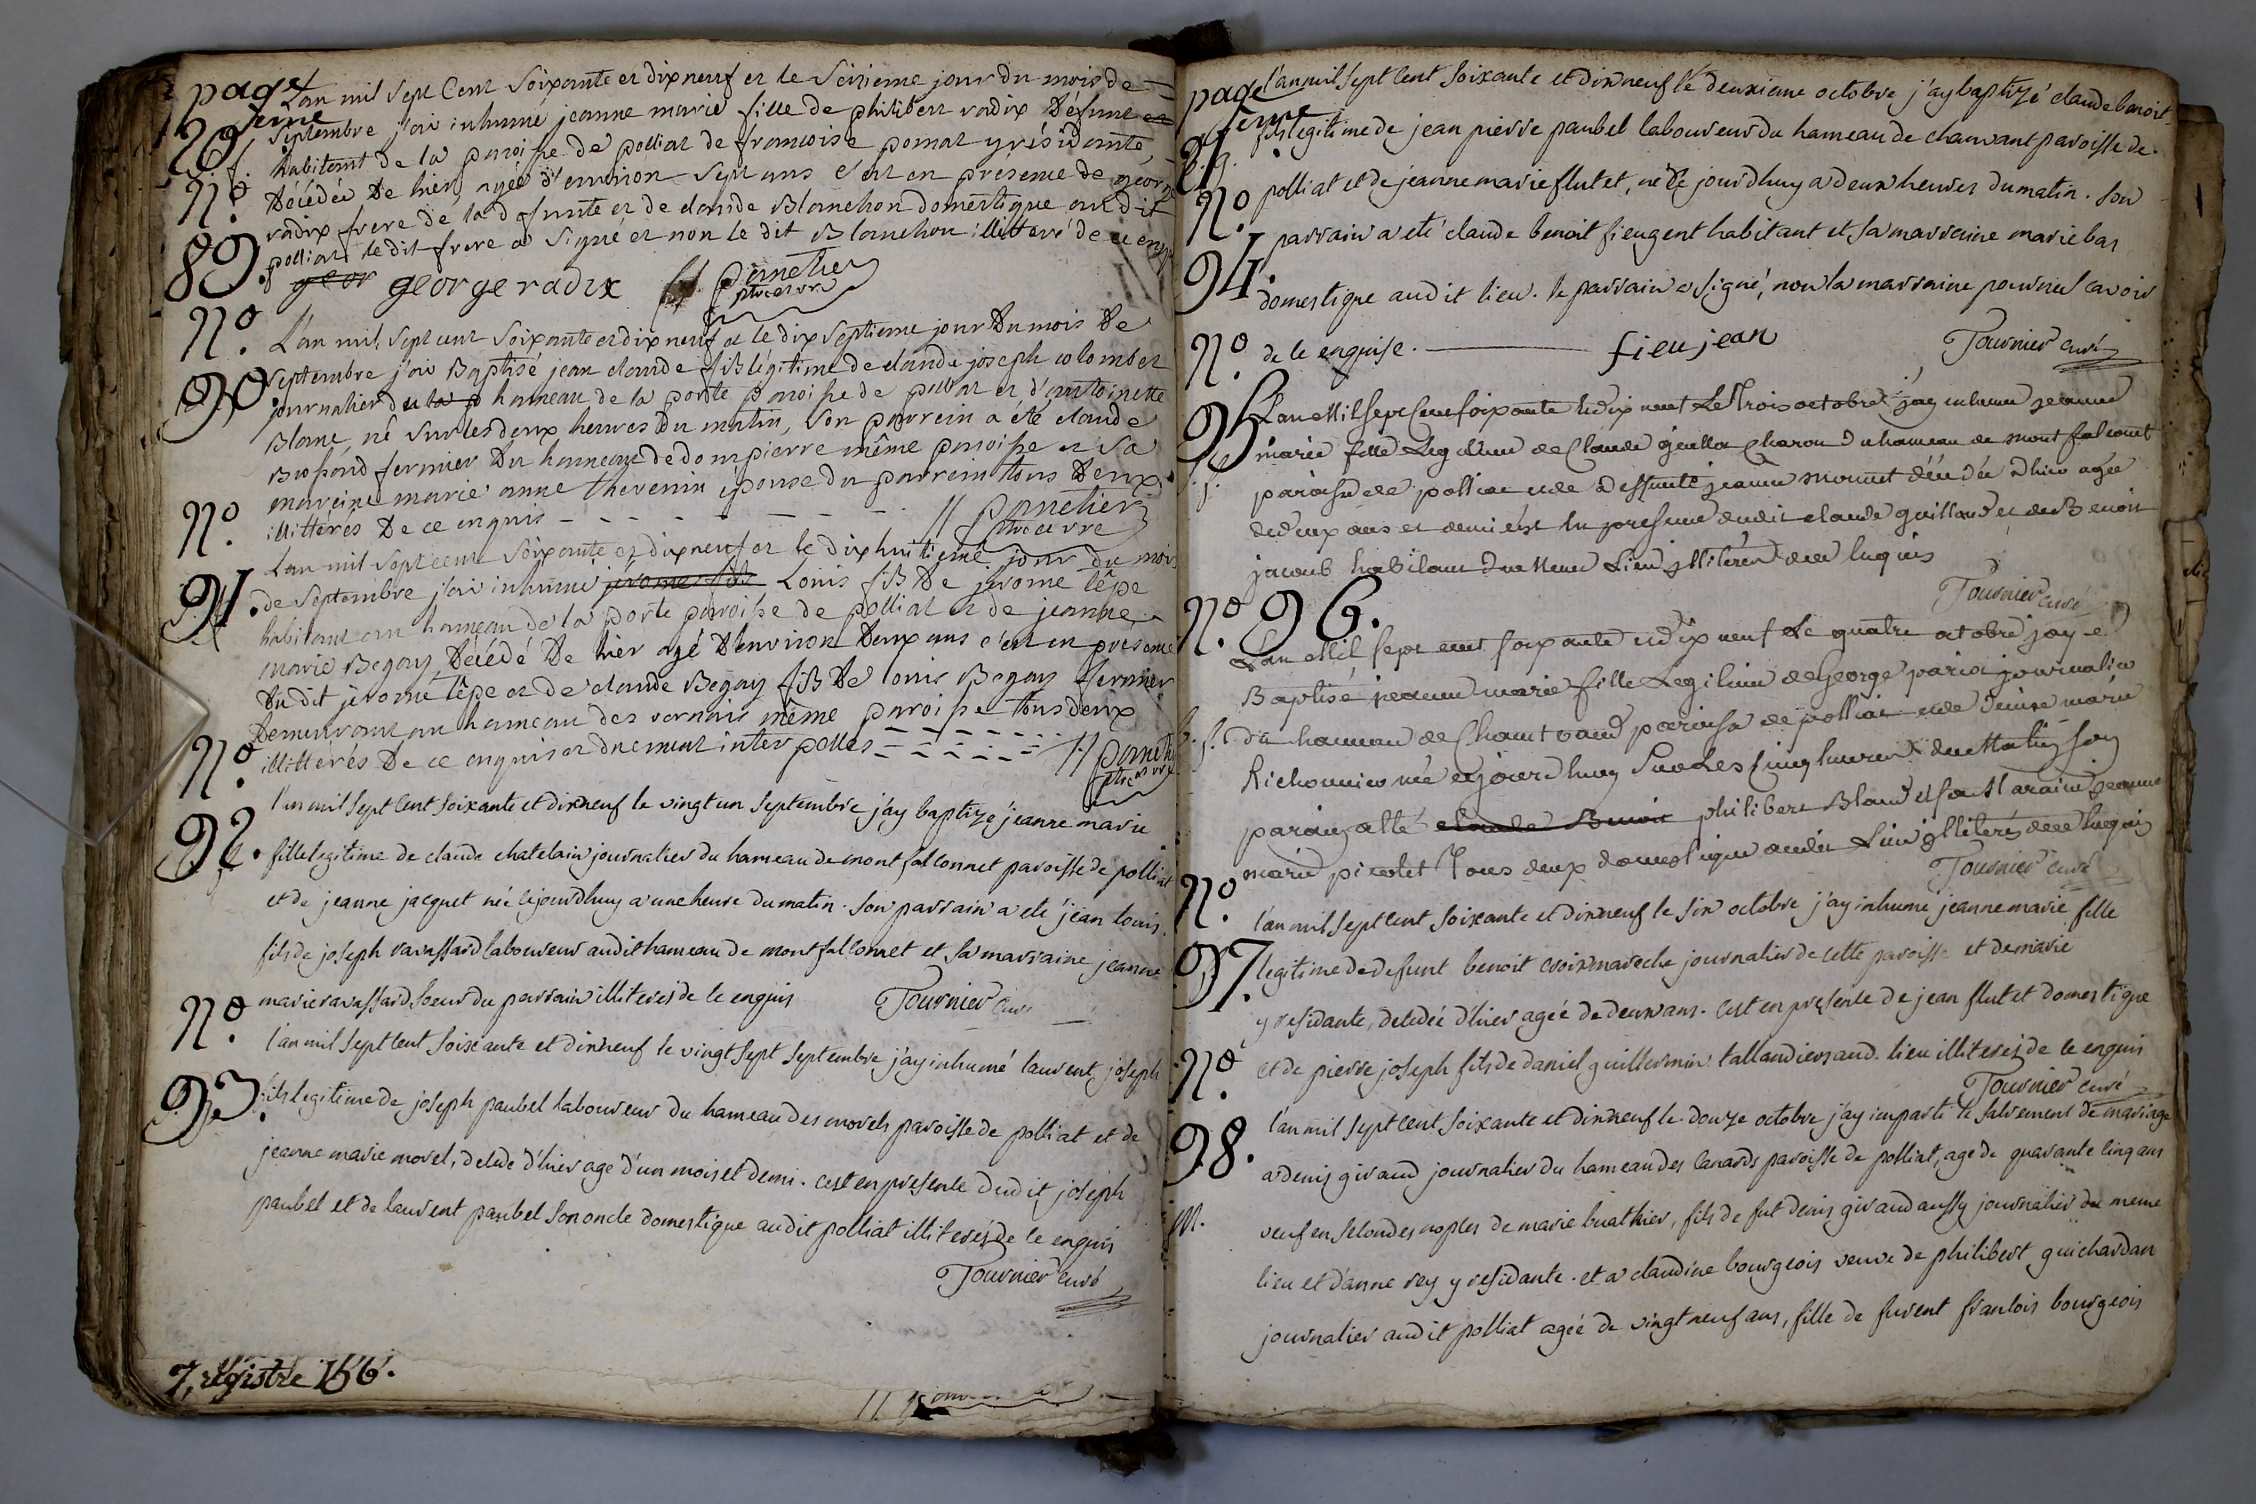 page
20eme
L'an mil sept Cent soixante et dix neuf et le seizieme jour du mois de
septembre j'ai inhumé jeanne marie fille de philibert radix défunt
habitant de la paroisse de polliat de francoise pomat y résidante,
Décédée De hier, agée d'environ sept ans c'est en présence de george
radix frere de la défunte et de claude Blanchon domestique audit
polliat le dit frere a signé et non le dit Blanchon illitteré de ce enquis
N.º
89.
george radix
N.º
90.
L'an mil sept cent soixante et dix neuf et le dix septieme jour Du mois De
septembre j'ai Baptisé jean claude fils légitime de claude joseph colombet
journalier du hameau de la porte paroisse de polliat et d'antoinette
Blanc, né sur les deux heures Du matin, son parrein a été claude
Brossand fermier Du hameau de dompierre même paroisse et sa
mareine marie anne thevenin épouse du parrein tous Deux
illitterés De ce enquis
N.º
91.
L'an mil sept cent soixante et dix neuf et le dix huitieme jour du mois
de septembre j'ai inhumé Louis fils De jerome lépe
habitant au hameau de la porte paroisse de polliat et de jeanne
marie Begay Décédé De hier agé D'environ Deux ans c'est en présence
Du dit jerome lépe et de claude Begay fils De louis Begay fermier
Demeurant au hameau des vernais même paroisse tous deux
illitterés De ce enquis et duement interpellés
N.º
92.
l'an mil sept cent soixante et dix neuf le vingt un septembre j'ay baptizé jeanne marie
fille legitime de claude chatelain journalier du hameau de mont fallconnet paroisse de polliat
et de jeanne jacquet née ce jourd'huy a une heure du matin. son parrain a eté jean louis
fils de joseph ravassard laboureur audit hameau de montfalconnet et sa marraine jeanne
marie ravassard soeur du parrain illiterés de ce enquis Tournier curé
N.º
93.
l'an mil sept cent soixante et dix neuf le vingt sept septembre j'ay inhumé laurent joseph
fils legitime de joseph paubel laboureur du hameau des morels paroisse de polliat et de
jeanne marie morel, decedé d'hier agé d'un mois et demi. c'est en presence dudit joseph
paubel et de laurent paubel son oncle domestique audit polliat illiterés de ce enquis
Tournier curé
7, registre 156.
page
21eme
l'an mil sept cent soixante et dix neuf le deuxieme octobre j'ay baptizé claude benoit
fils legitime de jean pierre paubel laboureur du hameau de chanvant paroisse de
polliat et de jeanne marie flutet, né ce jourd'huy a deux heures du matin. son
parrain a eté claude benoit fieugent habitant et sa marraine marie bas
domestique audit lieu. le parrain a signé, non la marraine pour ne sçavoir
de ce enquise. fieu jean Tournier curé
N.º
94.
N.º
95.
L'an Mil sept Cent soixante et dix neuf Le Trois octobre j'ay inhumé jeanne
marie fille Legitime de Claude guillon Charon du hameau de mont falconet
paroisse de polliat et de deffunte jeanne monnet décédée d'hier agée
de deux ans et demi c'est en presence dudit claude guillon et de Benoit
jacoub habitant du meme Lieu illiterés de ce enquis
Tournier curé
N.º 96.
L'an Mil sept cent soixante et dix neuf Le quatre octobre j'ay
Baptisé jeanne marie fille Legitime de George paria journalier
du hameau de Chanvand paroisse de polliat et de Denise marie
Richonnier née cejourd'huy sur Les cinq heures du Matin son
parain a été philibert Bland et sa Maraine jeanne
marie picolet Tous deux domestique audit Lieu illiterés de ce Enquis
Tournier curé
N.º
97.
l'an mil sept cent soixante et dix neuf le six octobre j'ay inhumé jeanne marie fille
legitime de defunt benoit croixmareche journalier de cette paroisse et de marie
y residante, decedée d'hier agée de deux ans. c'est en presence de jean flutet domestique
et de pierre joseph fils de daniel guillermin tallandiers aud. lieu illiterés de ce enquis
Tournier curé
N.º
98.
m.
l'an mil sept cent soixante et dix neuf le douze octobre j'ay imparti le sacrement de mariage
a denis giraud journalier du hameau des canards paroisse de polliat, agé de quarante cinq ans
veuf en secondes noples de marie buathier, fils de fut denis giraud aussy journalier du meme
lieu et d'anne rey y residante. et a claudine bourgeois veuve de philibert guichardan
journalier audit polliat agée de vingt neuf ans, fille de furent francois bourgeois